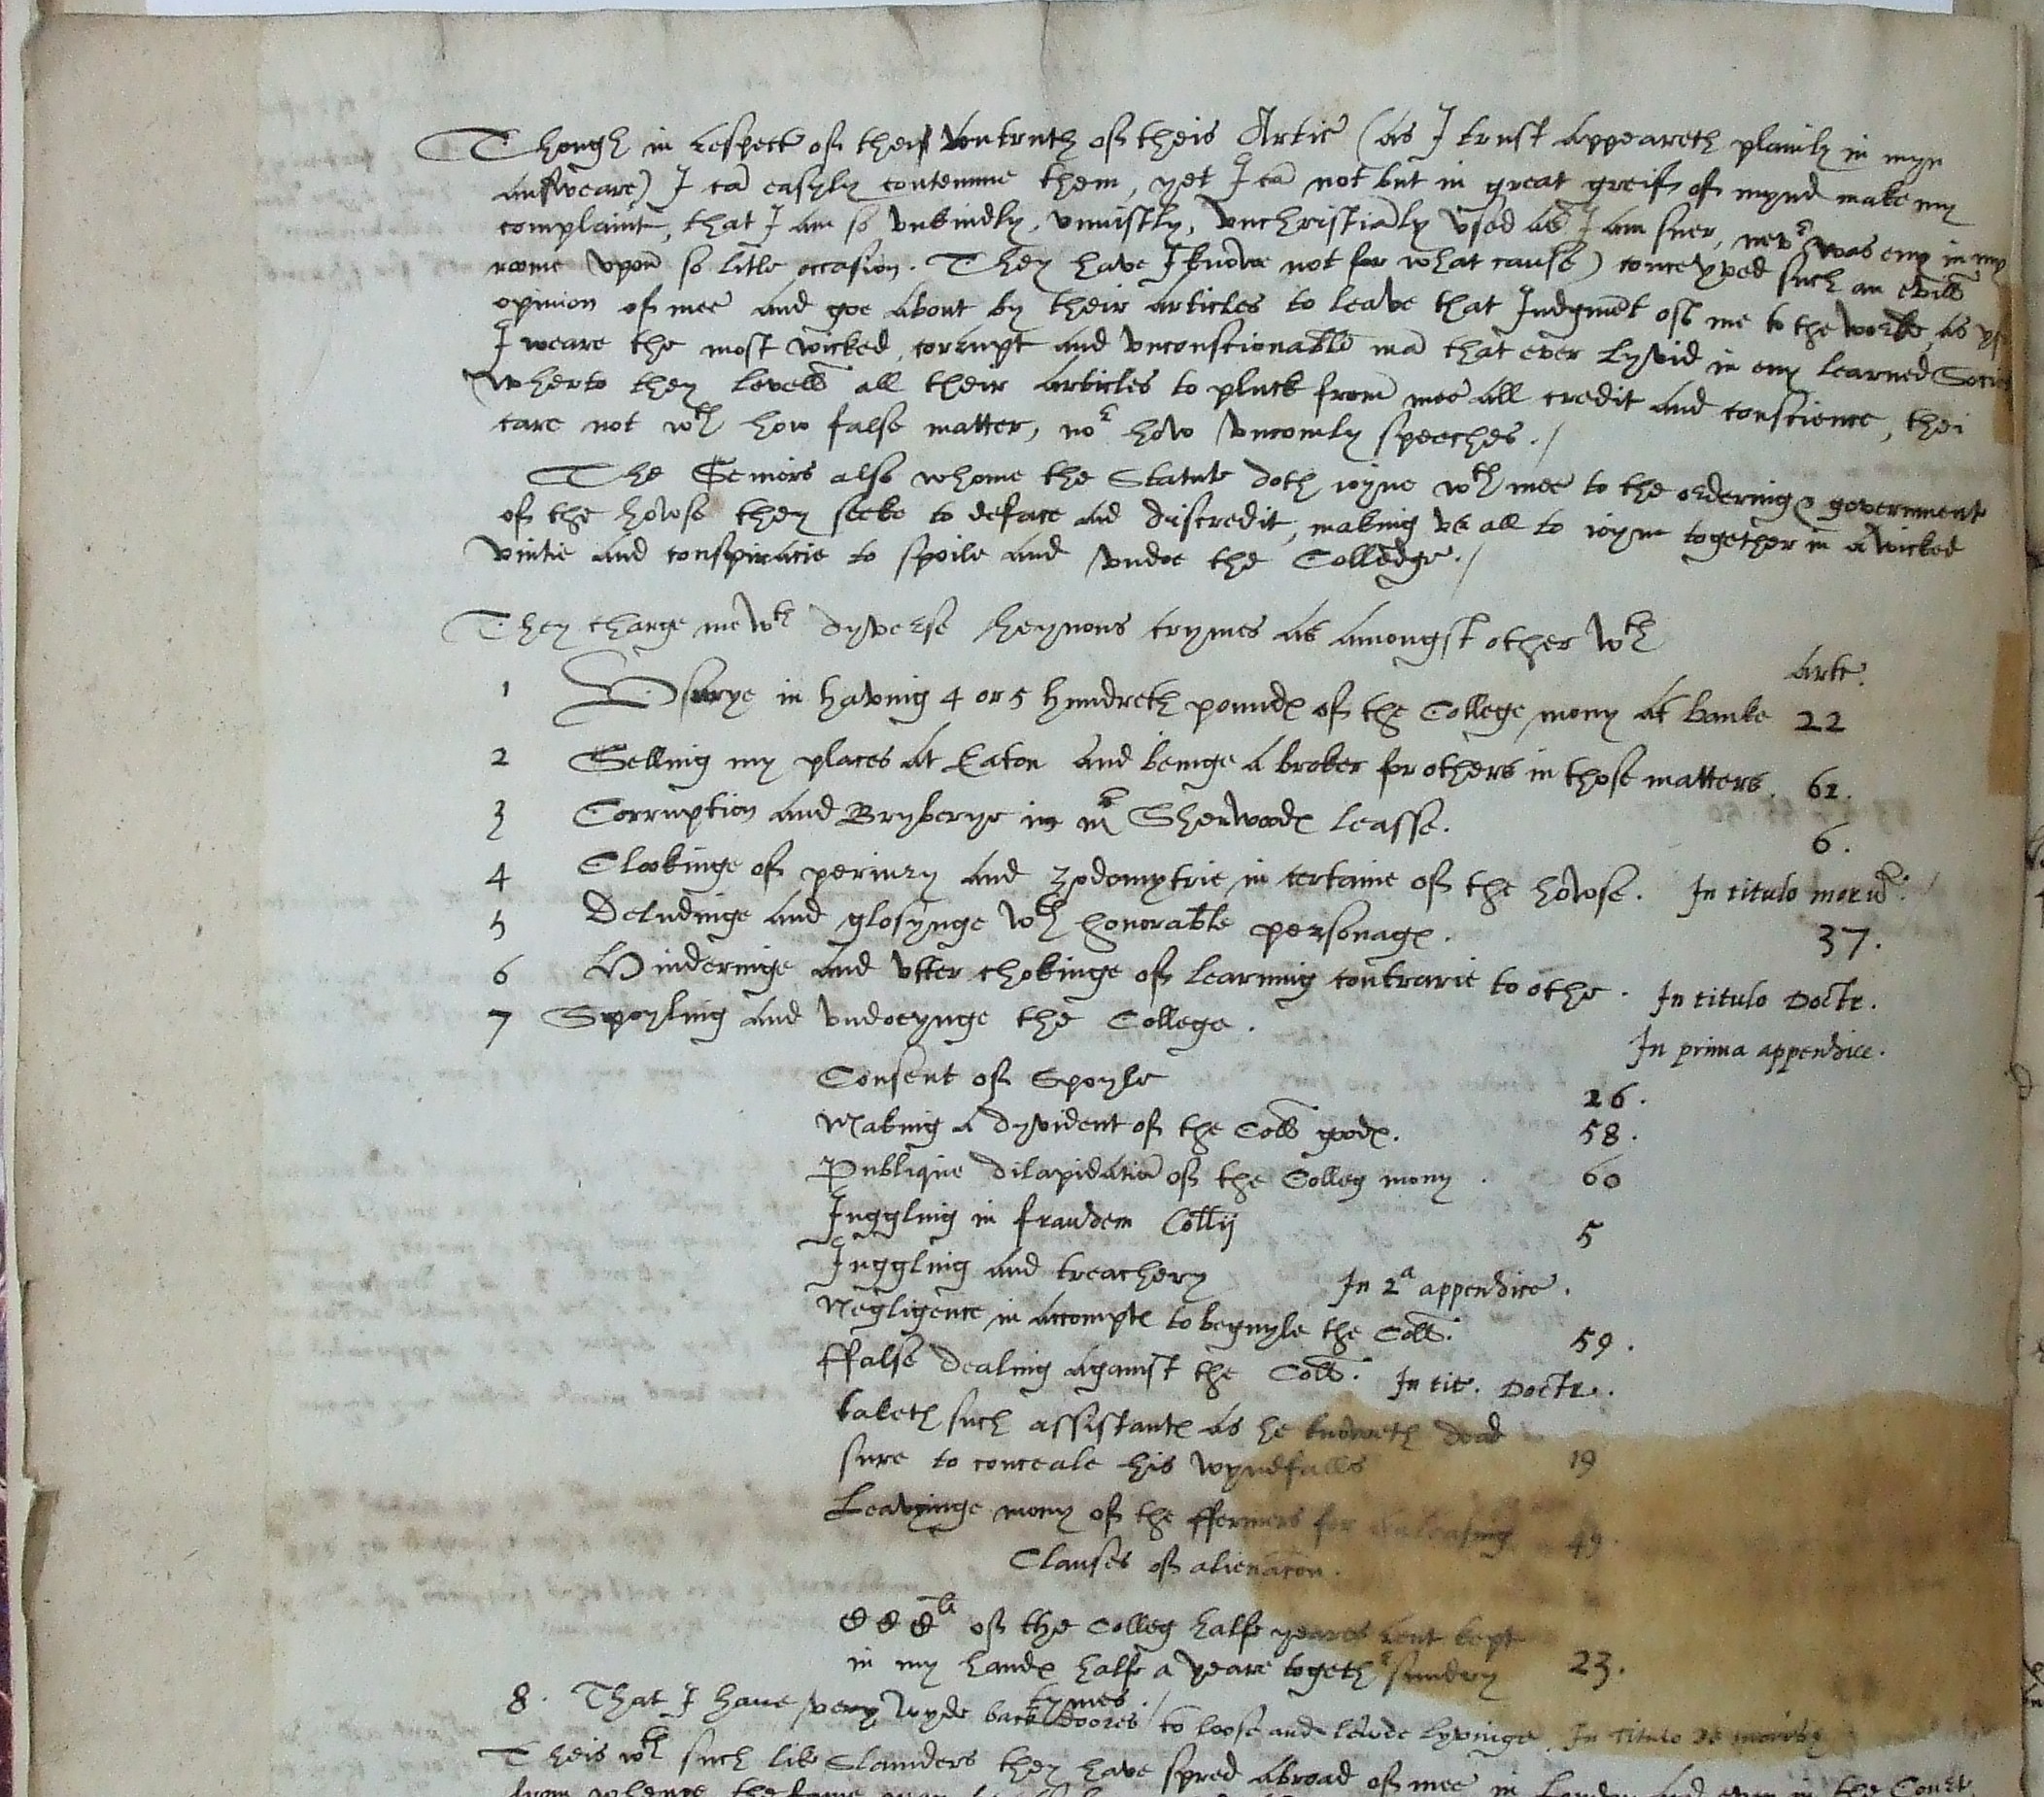 Though in respect of their untruth of theis Artic (as I trust appeareth plainly in myn
answeare) I cā easyly contemne them, yet I cā not but in great greif of mynd make my
complaint, that I am so vnkindly, vniustly, vnchristiāly vsed as I am suer, nevr was eny in my
roome vpon so litle occasion. They have I knowe not for what cause) conceyved such an evill
opinion of mee and goe about by their articles to leave that Judgmēt of me to the worlde, as yf
I weare the most wicked, corrupt and vnconscionable mā that ever lyvid in eny learned Socie
wherto they levell all their articles to pluck from mee all credit and conscience, thei
care not wth how false matter, nor how vncomly speeches./
The Seniors also whome the Statute doth ioyne wth mee to the ordering & government
of the howse they seeke to deface and discredit, making vs all to ioyne together in a wicked
vnitie and conspiracie to spoile and vndoe the Colledge./
They charge me wth dyverse heynous crymes as amongst other wth
arte.
1 Vsurye in having 4 or 5 hundreth poundes of the College mony at banke 22
2 Selling my places at Eaton and beinge a broker for others in those matters. 61.
3 Corruption and Bryberye in mr Sherwoodes leasse. 6.
4 Clookinge of periury and zodomytrie in certaine of the howse. In titulo morū./
5 Deludinge and glosynge wth honorable personages. 37.
6 Hinderinge and vtter chokinge of learning contrarie to othe. In titulo Doctr.
7 Spoyling and vndoeynge the College. In prima appendice.
Consent of Spoyle 26.
Making a dyvident of the Coll goodes. 58.
Publique dilapidatiō of the Colleg mony. 60
Juggling in fraudem Collij 5
Juggling and treachery In 2a appendice.
Negligence in accomptes to beguyle the Coll. 59.
ffalse dealing against the Coll. In tit. Doctr.
taketh such assistantes as he knoweth dead
sure to conceale his wyndfalls 19
Leavyinge mony of the ffermers for 49
Clauses of alienacon.
of the Colleg halfe yeares rent kept
in my handes halfe a yeare togethr sundry 23.
tymes./
8. That I have very wyde back doores to loose and lewde lyvinge. In Titulo de moribz
Theis wth such like Slaunders they have spred abroad of mee in London and even in the Court
from whence the same